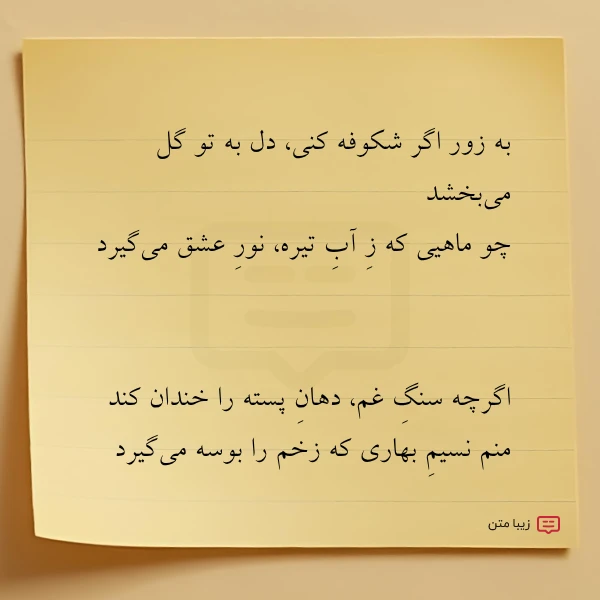 به زور اگر شکوفه کنی، دل به تو گل
می‌بخشد
چو ماهیی که زِ آبِ تیره، نورِ عشق می‌گیرد
اگرچه سنگِ غم، دهانِ پسته را خندان کند
منم نسیمِ بهاری که زخم را بوسه می‌گیرد
زیبا متن